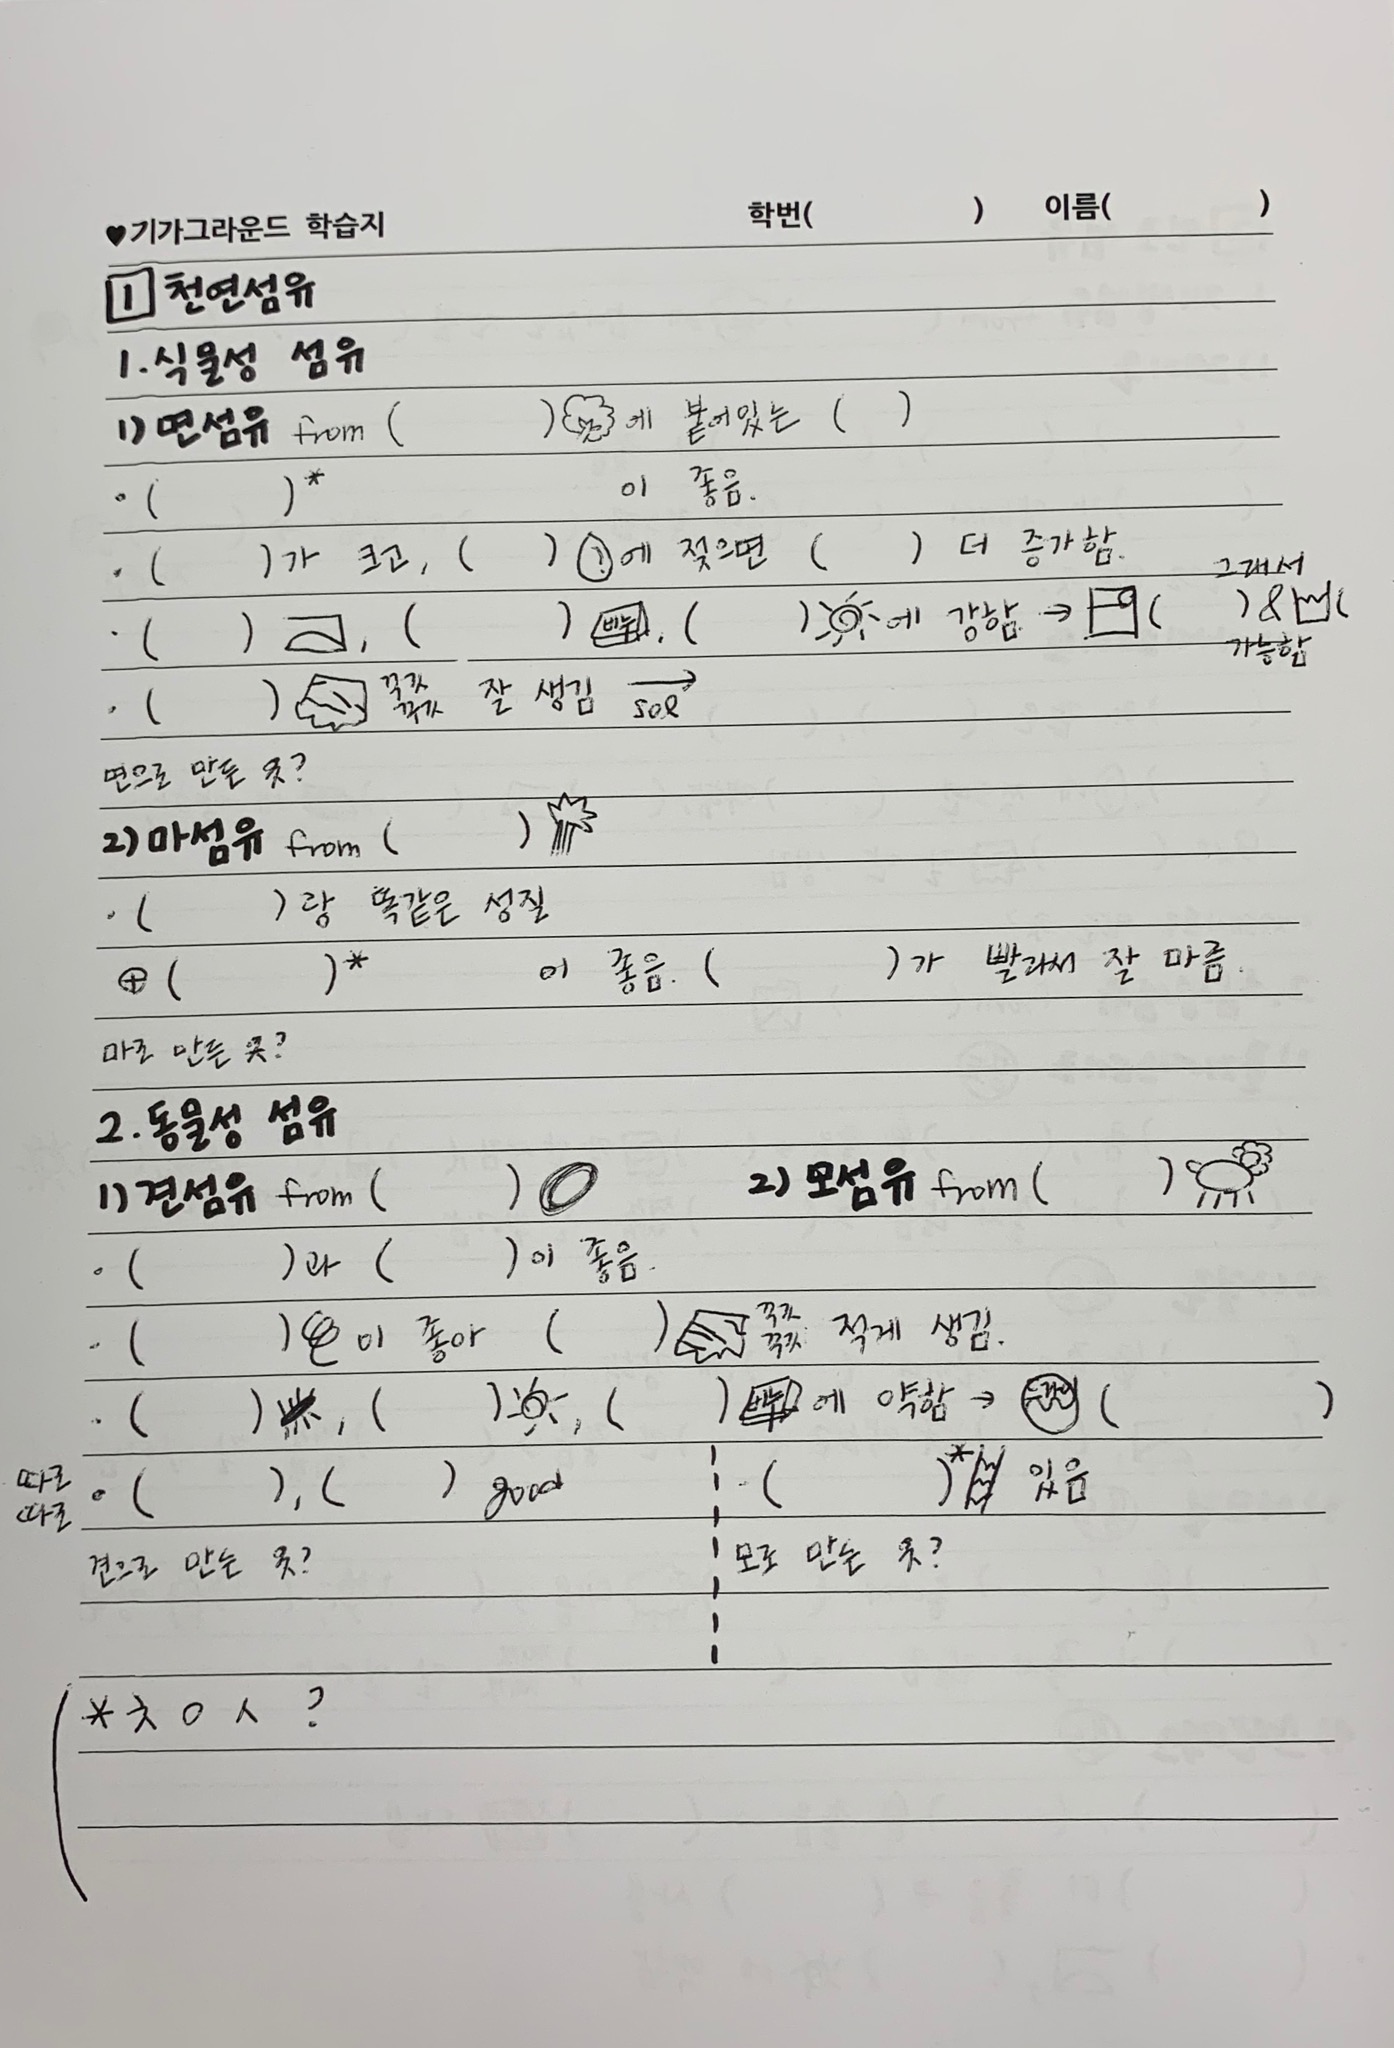 ♥기가그라운드 학습지 학번( ) 이름( )
1 천연섬유
1. 식물성 섬유
1) 면섬유 from ( )에 붙어있는 ( )
· ( )* 이 좋음.
· ( )가 크고, ( )에 젖으면 ( ) 더 증가함.
· ( ), ( ) 비누, ( )에 강함 → ( ) & ( 그래서 가능함
· ( ) 꾸깃 꾸깃 잘 생김 → sol
면으로 만든 옷?
2) 마섬유 from ( )
· ( )랑 똑같은 성질
⊕ ( )* 이 좋음. ( )가 빨라서 잘 마름.
마로 만든 옷?
2. 동물성 섬유
1) 견섬유 from ( ) 2) 모섬유 from ( )
· ( )과 ( )이 좋음.
· ( )이 좋아 ( ) 꾸깃 꾸깃 적게 생김.
· ( ), ( ), ( ) 비누에 약함 → ( )
따로 따로 · ( ), ( ) good · ( )* 있음
견으로 만든 옷? 모로 만든 옷?
* ㅊ ㅇ ㅅ ?